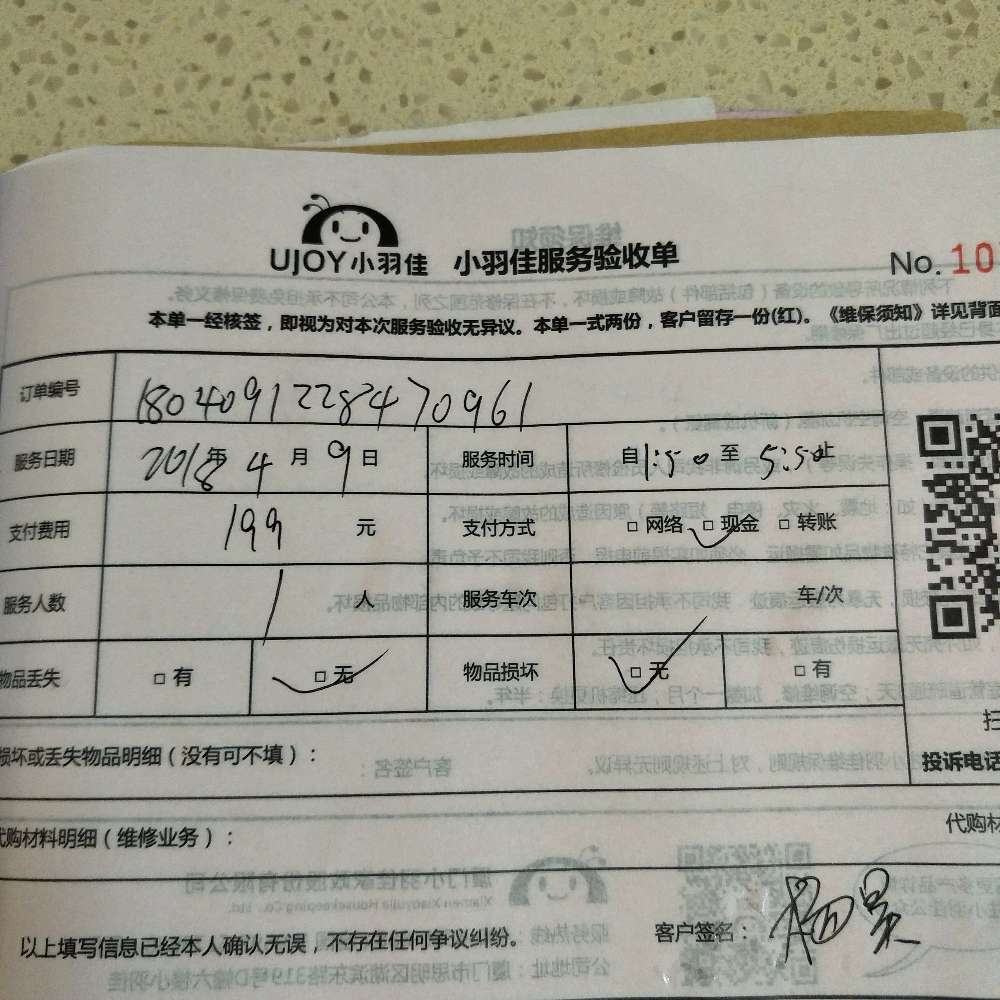 UJOY小羽佳 小羽佳服务验收单 No.10
本单一经核签，即视为对本次服务验收无异议。本单一式两份，客户留存一份(红)。《维保须知》详见背面
订单编号 180409122847096​1
服务日期 2018年 4 月 9 日 服务时间 自 1:50 至 5:50止
支付费用 199 元 支付方式 □ 网络 □ 现金 □ 转账
服务人数 1 人 服务车次 车/次
物品丢失 □ 有 □ 无 物品损坏 □ 无 □ 有
扫
损坏或丢失物品明细（没有可不填）： 投诉电话
代购材料明细（维修业务）： 代购材
以上填写信息已经本人确认无误，不存在任何争议纠纷。 客户签名：